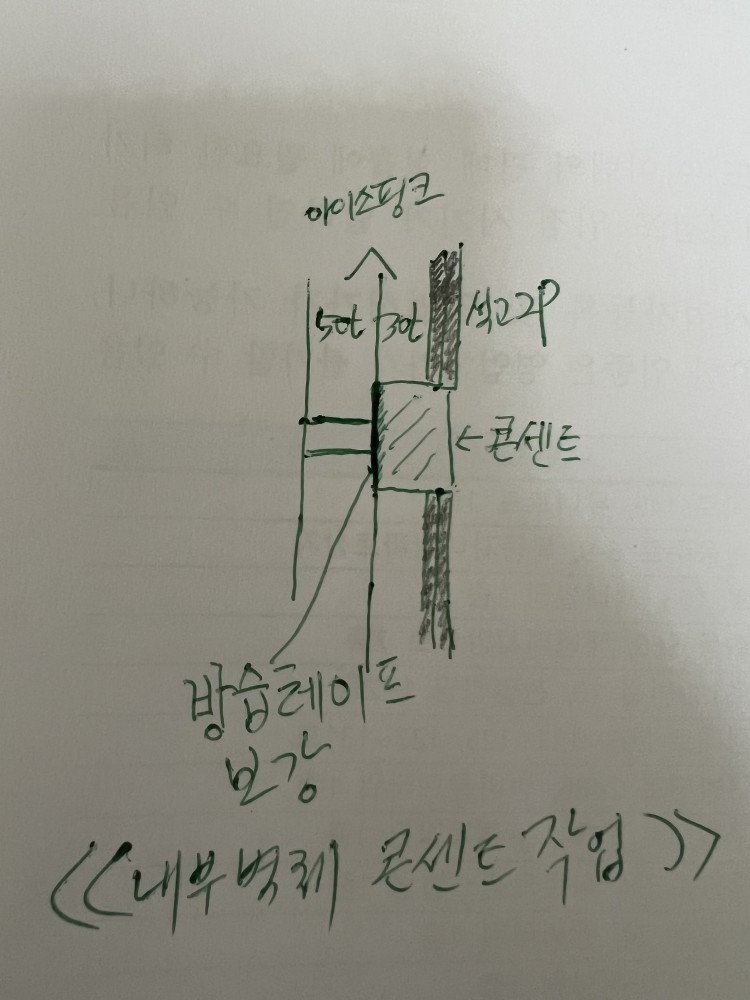 아이소핑크
50t 30t 석고2P
←콘센트
방습테이프
보강
<<내부벽체 콘센트 작업>>